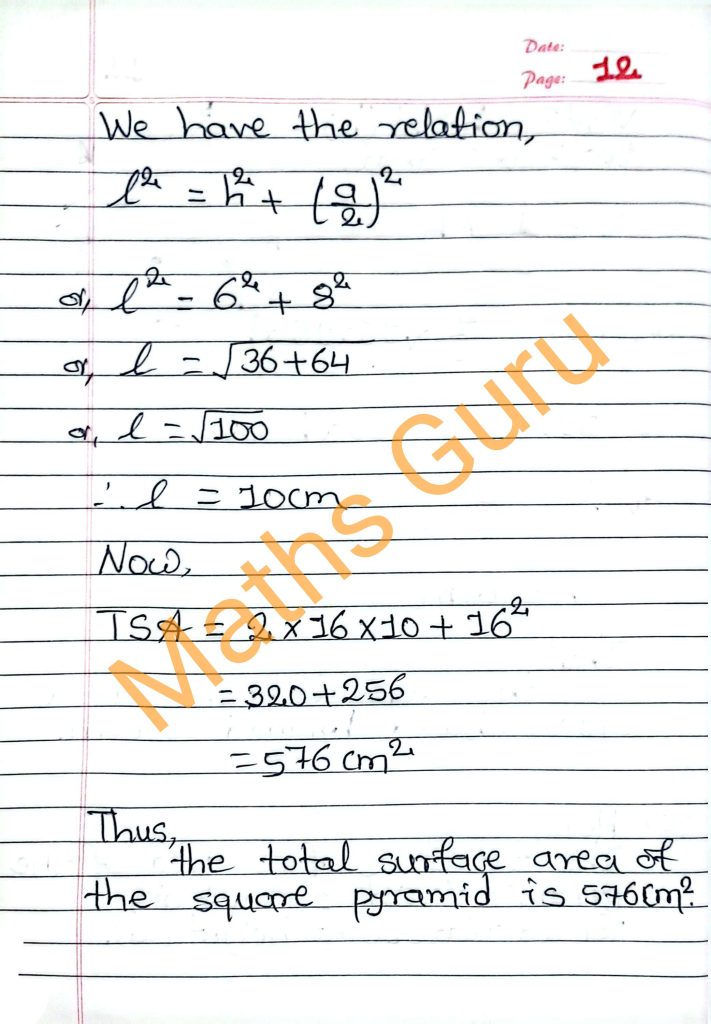 Date:
Page: 12
We have the relation,
l² = h² + (a/2)²
or, l² = 6² + 8²
or, l = √36+64
or, l = √100
∴ l = 10cm
Now,
TSA = 2 × 16 × 10 + 16²
= 320 + 256
= 576 cm²
Thus,
the total surface area of
the square pyramid is 576cm².
Maths Guru